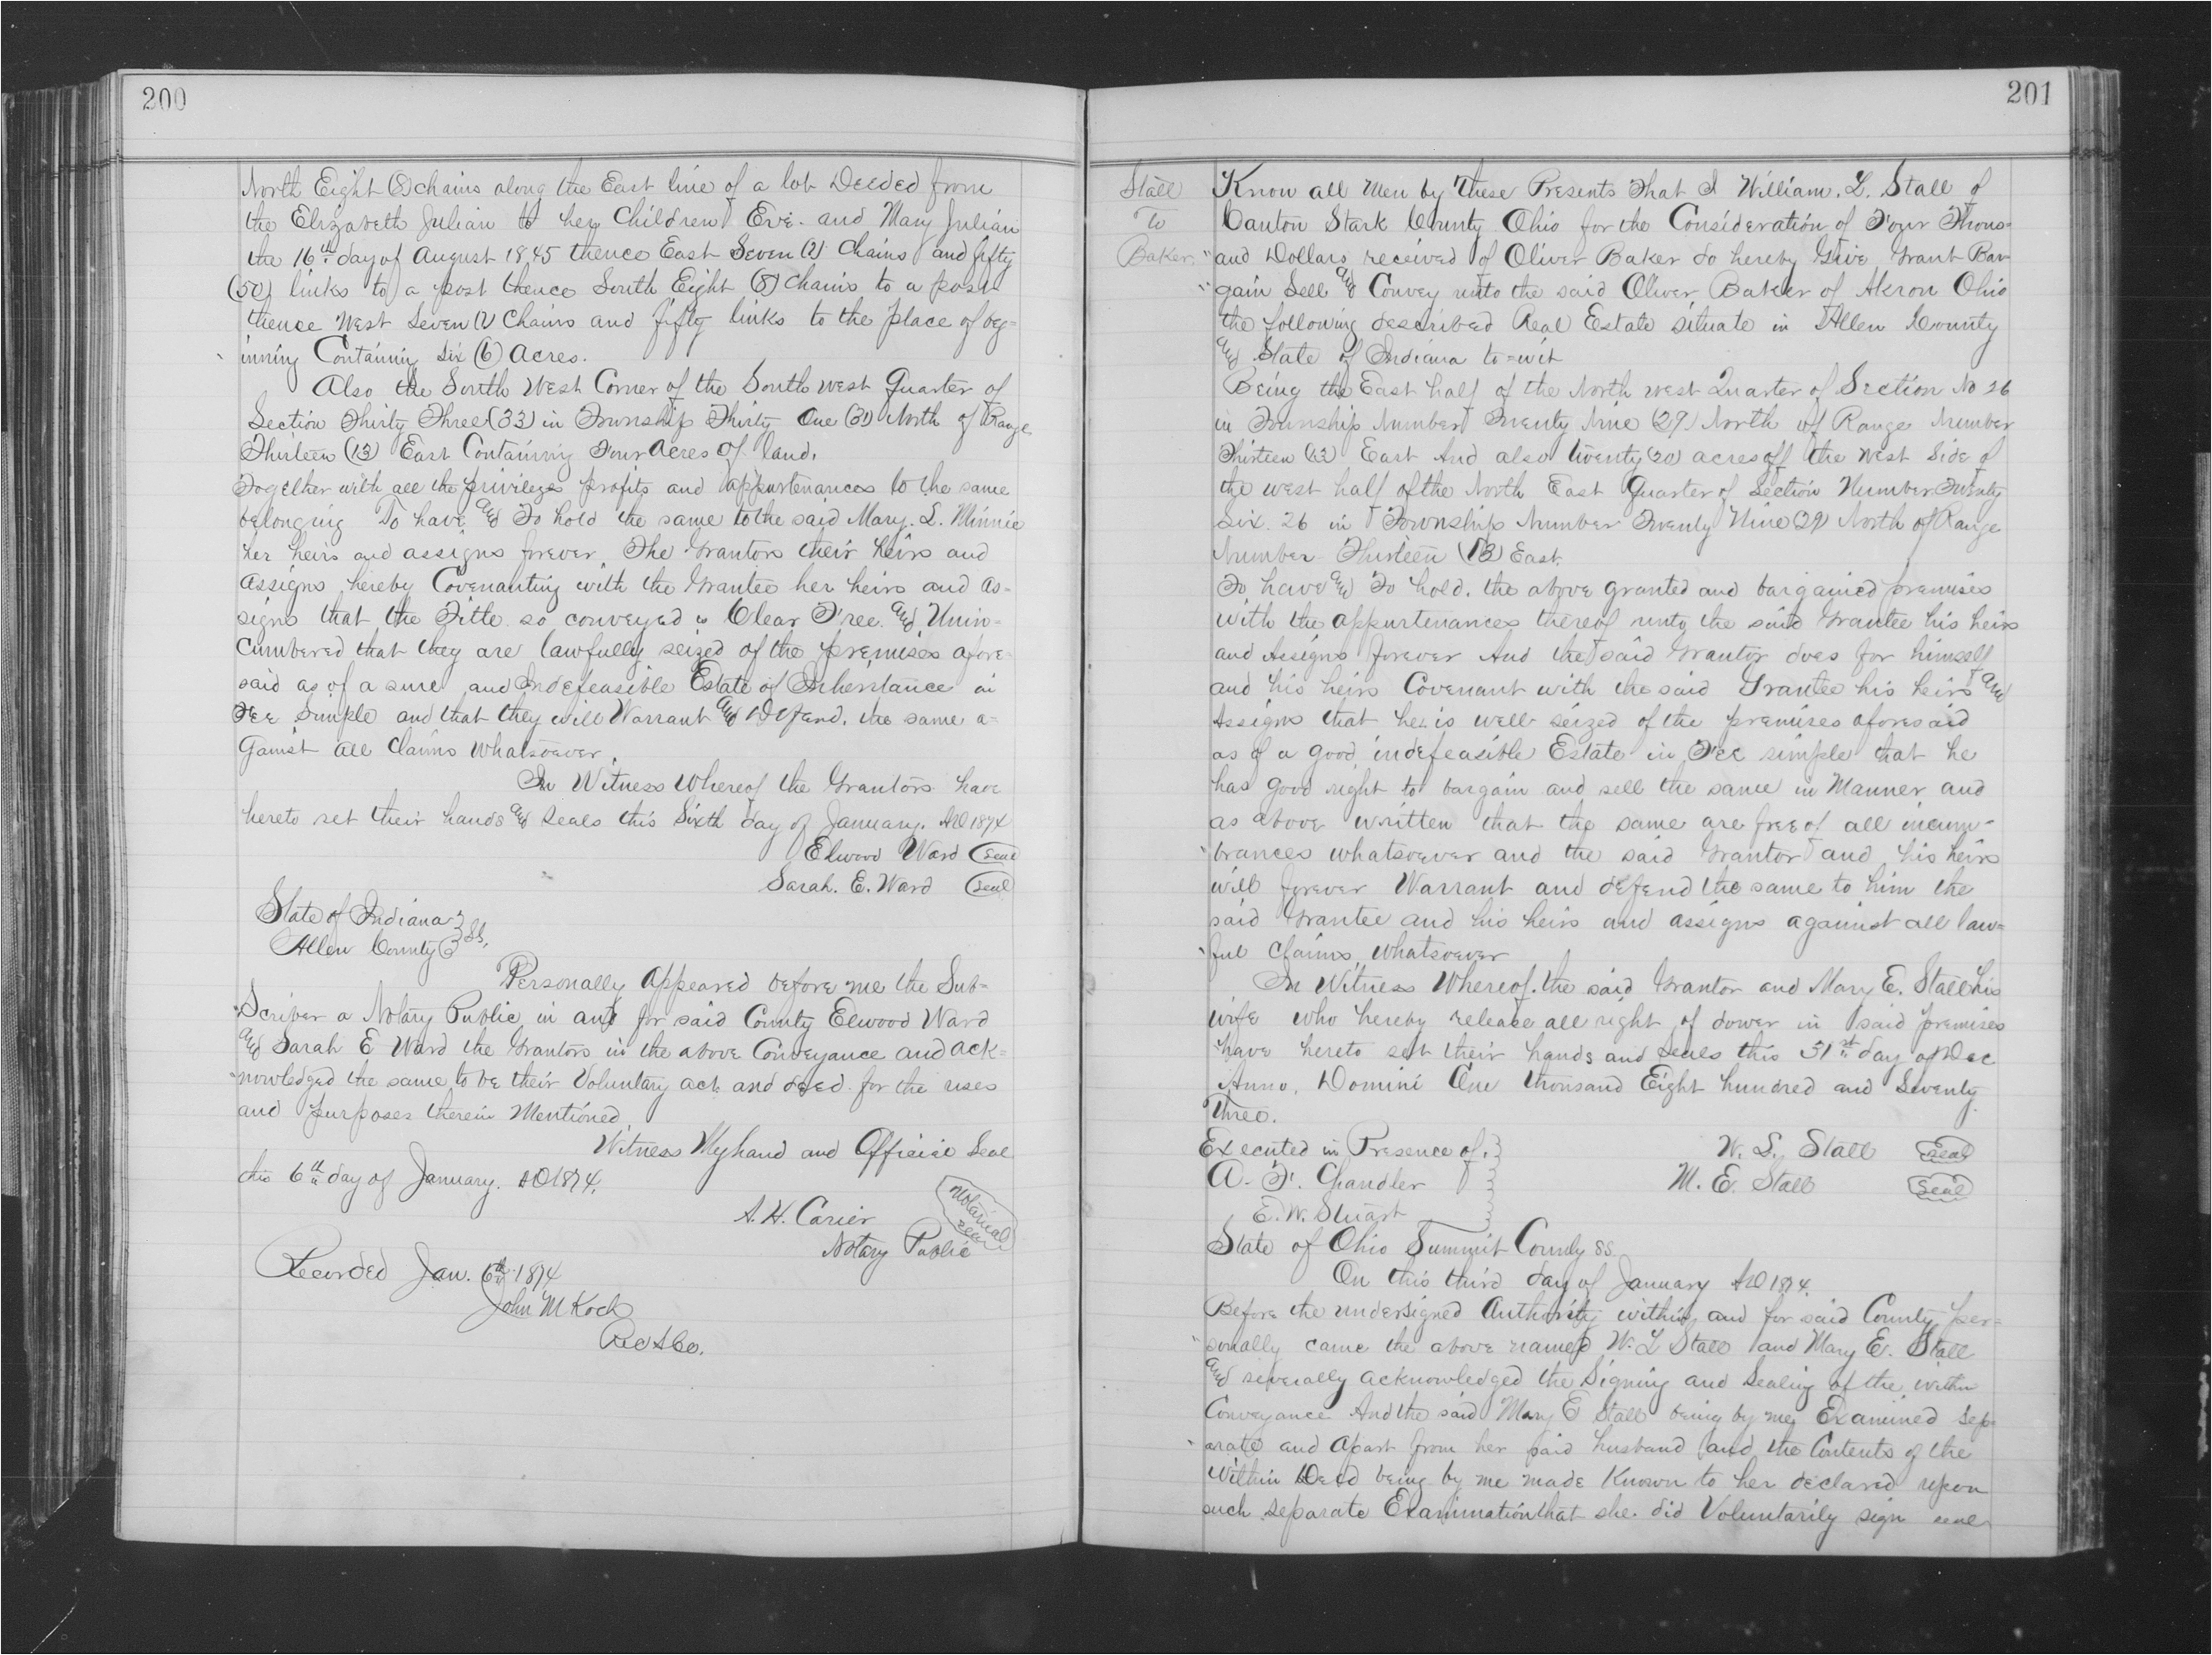 200
North Eight (8) chains along the East line of a lot Deeded from
the Elizabeth Julian to her Children Eve. and Mary Julian
the 16th day of August 1845 thence East Seven (7) Chains and fifty
(50) links to a post thence South Eight (8) Chains to a post
thence West Seven (7) Chains and fifty links to the place of beg=
inning Containing Six (6) Acres.
Also the South West Corner of the South west Quarter of
Section Thirty Three (33) in Township Thirty One (31) North of Range
Thirteen (13) East Containing Four Acres of land.
Together with all the privileges profits and appurtenances to the same
belonging To have and To hold the same to the said Mary. L. Minnie
her heirs and assigns forever. The Grantors their heirs and
assigns hereby Covenanting with the Grantee her heirs and as-
signs that the Title so conveyed is Clear Free and Unin=
cumbered that they are lawfully seized of the premises afore=
said as of a sure and Indefeasible Estate of Inheritance in
Fee Simple and that they will Warrant and Defend. the same a=
gainst all Claims Whatsoever.
In Witness Whereof the Grantors have
hereto set their hands and Seals this Sixth day of January. AD 1874
Elwood Ward (Seal)
Sarah. E. Ward (Seal)
State of Indiana
Allen County } SS.
Personally Appeared before me the Sub=
"Scriber a Notary Public in and for said County Elwood Ward
and Sarah E Ward the Grantors in the above Conveyance and ack=
"nowledged the same to be their Voluntary act and deed for the uses
and purposes therein Mentioned
Witness My hand and Official Seal
this 6th day of January. AD 1874.
A. H. Carier
Notarial Seal
Notary Public
Recorded Jan. 6th 1874
John M Koch
Rec A Co.
201
Stall
To
Baker
Know all Men by These Presents That I William. L. Stall of
Canton Stark County Ohio for the Consideration of Four Thous=
"and Dollars received of Oliver Baker do hereby Give Grant Bar
"gain Sell and Convey unto the said Oliver Baker of Akron Ohio
the following described Real Estate situate in Allen County
and State of Indiana to=wit
Being the East half of the North west Quarter of Section No 26
in Township Number Twenty Nine (29) North of Range Number
Thirteen (13) East And also twenty (20) acres off the West Side of
the west half of the North East Quarter of Section Number Twenty
Six. 26 in Township Number Twenty Nine (29) North of Range
Number Thirteen (13) East.
To have and To hold. the above granted and bargained premises
with the appurtenances thereof unto the said Grantee his heirs
and Assigns forever And the said Grantor does for himself
and his heirs Covenant with the said Grantee his heirs and
Assigns that he is well seized of the premises aforesaid
as of a good indefeasible Estate in Fee simple that he
has good right to bargain and sell the same in Manner and
as above written that the same are free of all incum-
"brances whatsoever and the said Grantor and his heirs
will forever Warrant and defend the same to him the
said Grantee and his heirs and assigns against all law=
"ful claims whatsoever
In Witness Whereof. the said Grantor and Mary E. Stall his
wife who hereby release all right of dower in said premises
have hereto set their hands and Seals this 31st day of Dec
Anno. Domini One thousand Eight hundred and Seventy
Three.
Executed in Presence of.
W. L. Stall (Seal)
A. F. Chandler
M. E. Stall (Seal)
E. W. Stuart
State of Ohio Summit County SS
On this third day of January AD 1874.
Before the undersigned Authority within and for said County per=
"sonally came the above named W. L Stall and Mary E. Stall
and severally acknowledged the Signing and Sealing of the within
Conveyance And the said Mary E Stall being by me Examined sep
"arate and Apart from her said husband and the Contents of the
Within Deed being by me made Known to her declared upon
such separate Examination that she did Voluntarily sign seal